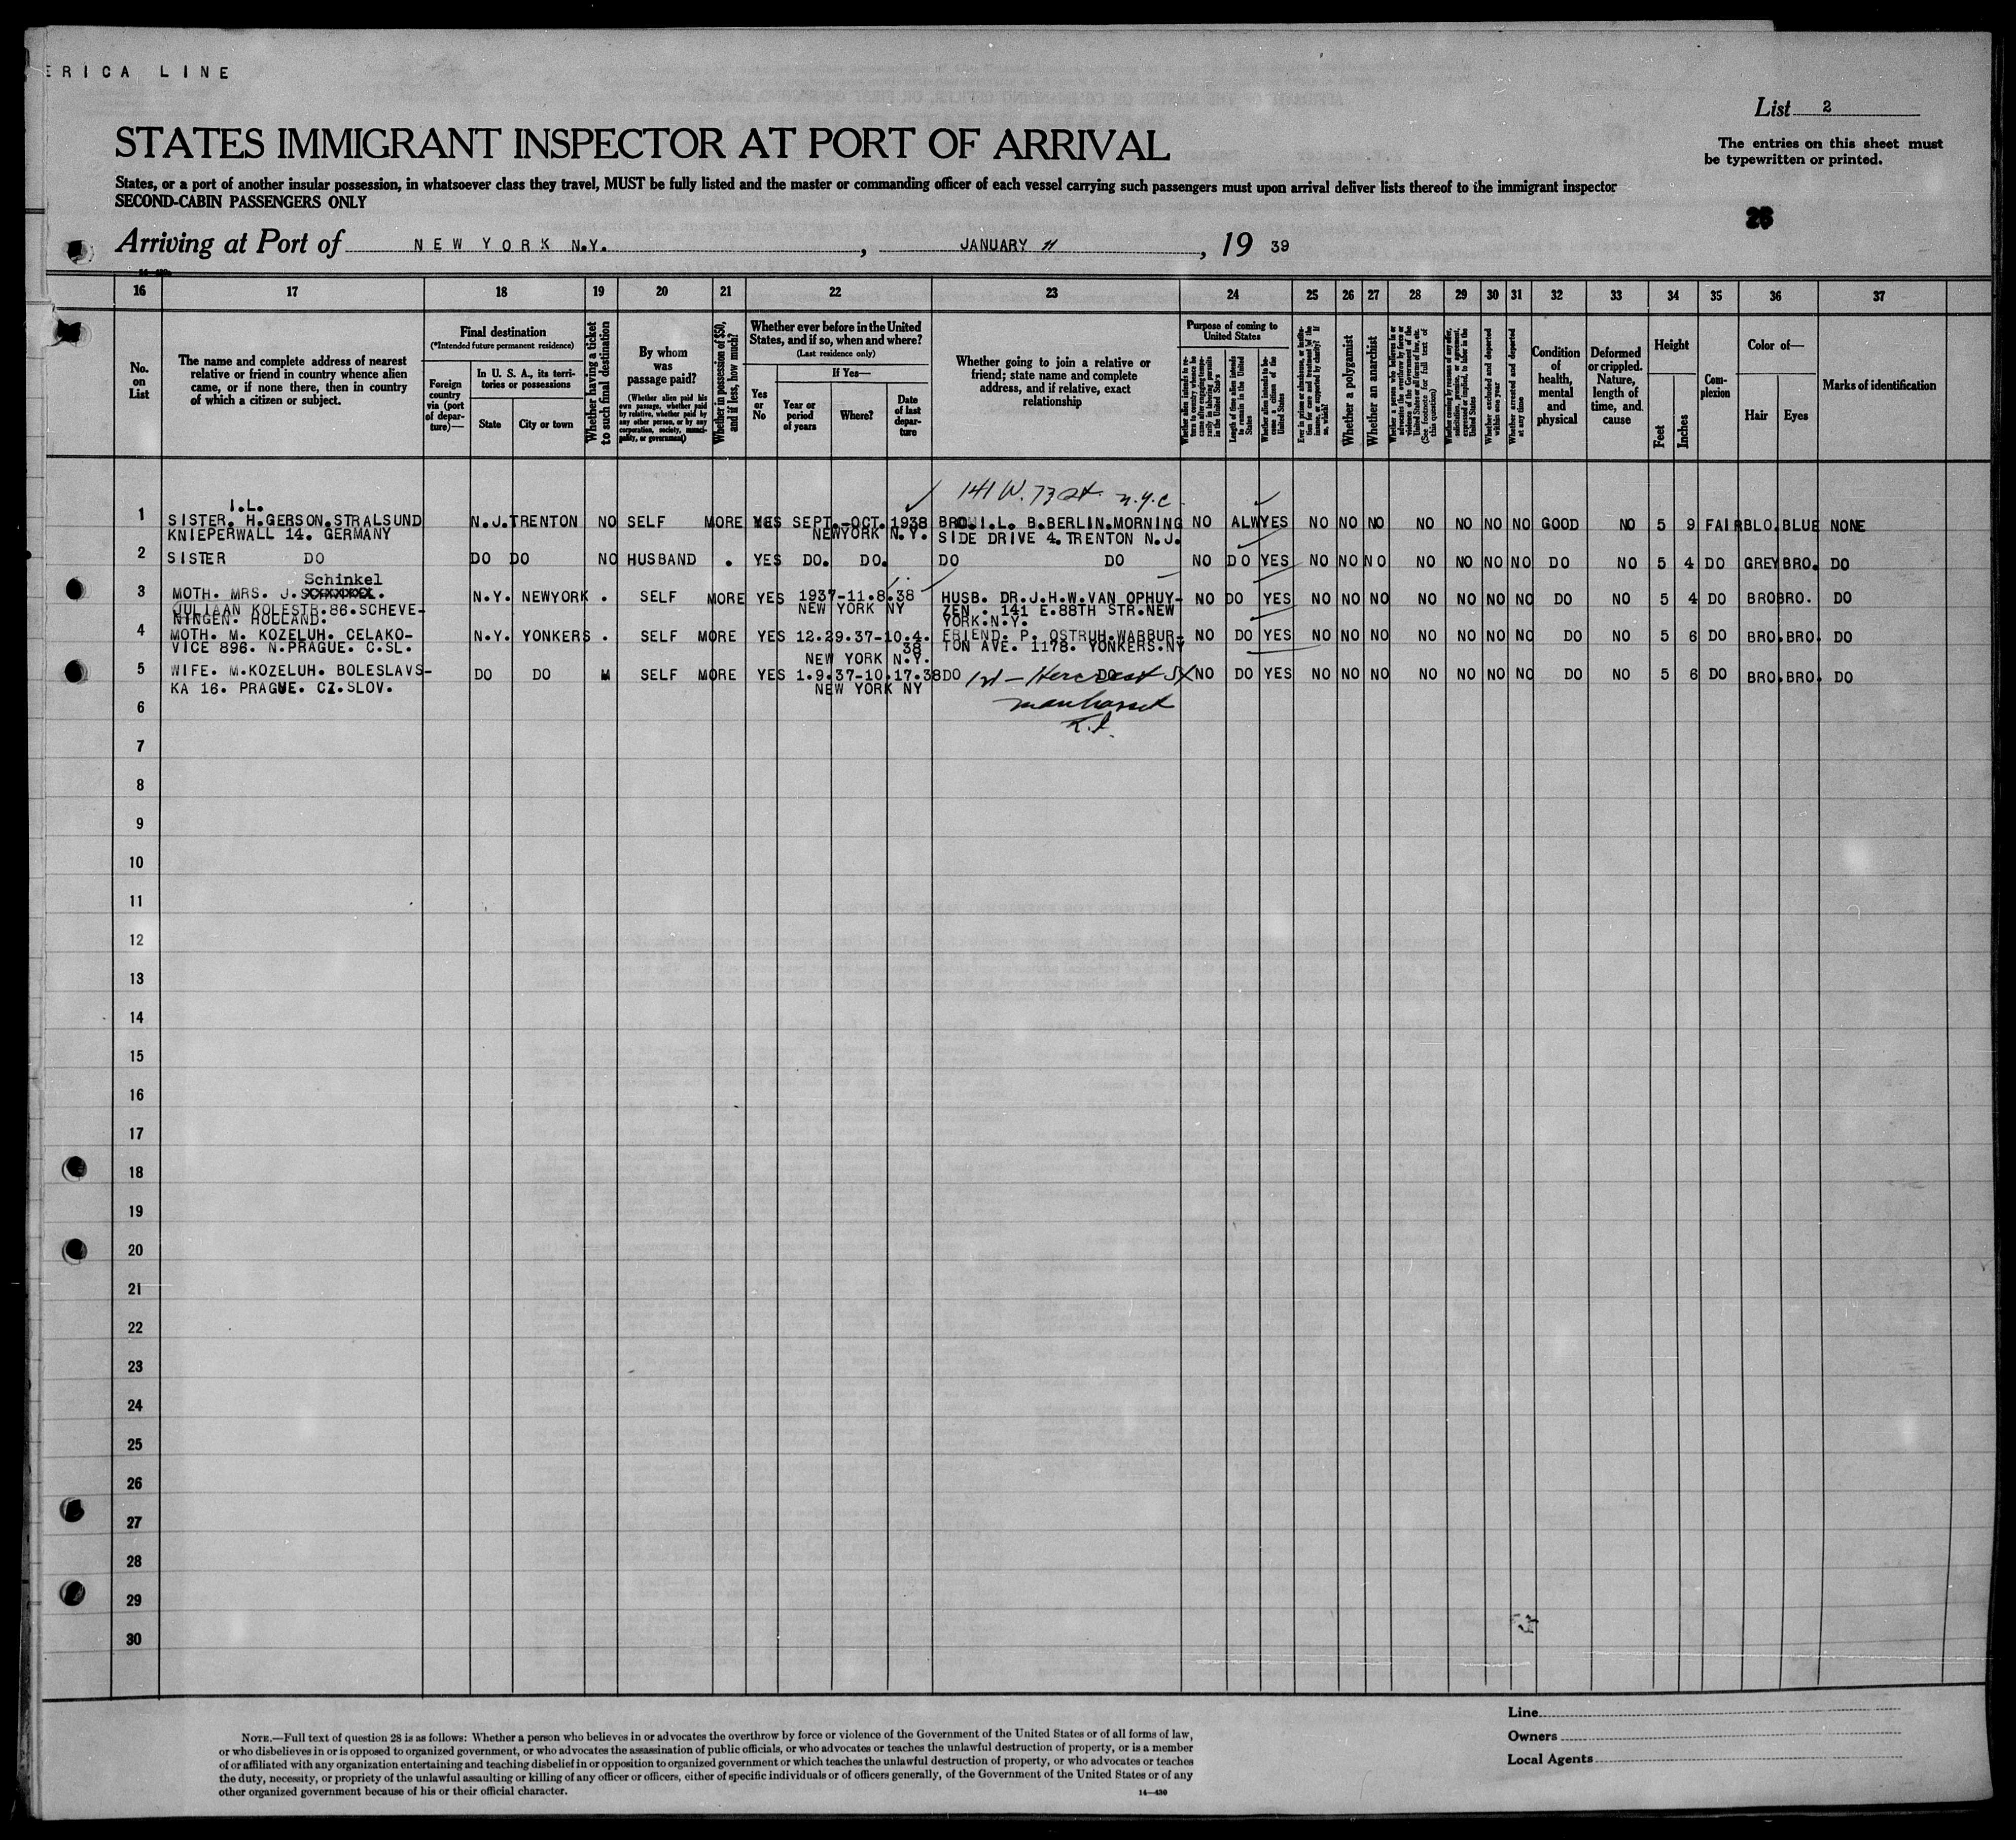 ERICA LINE
List 2
STATES IMMIGRANT INSPECTOR AT PORT OF ARRIVAL
The entries on this sheet must
be typewritten or printed.
States, or a port of another insular possession, in whatsoever class they travel, MUST be fully listed and the master or commanding officer of each vessel carrying such passengers must upon arrival deliver lists thereof to the immigrant inspector
SECOND-CABIN PASSENGERS ONLY
Arriving at Port of NEW YORK N.Y., JANUARY 11, 19 39
16 17 18 19 20 21 22 23 24 25 26 27 28 29 30 31 32 33 34 35 36 37
No. on List
The name and complete address of nearest relative or friend in country whence alien came, or if none there, then in country of which a citizen or subject.
Final destination
(*Intended future permanent residence)
Foreign country via (port of departure)—
In U. S. A., its territories or possessions
State
City or town
Whether having a ticket to such final destination
By whom was passage paid?
(Whether alien paid his own passage, whether paid by relative, whether paid by any other person, or by any corporation, society, municipality, or government)
Whether in possession of $50, and if less, how much?
Whether ever before in the United States, and if so, when and where?
(Last residence only)
Yes or No
If Yes—
Year or period of years
Where?
Date of last departure
Whether going to join a relative or friend; state name and complete address, and if relative, exact relationship
Purpose of coming to United States
Whether alien intends to return to country whence he came after engaging temporarily in laborious pursuits in the United States
Length of time alien intends to remain in the United States
Whether alien intends to become a citizen of the United States
Ever in prison or almshouse, or institution for care and treatment of the insane, or supported by charity? If so, which?
Whether a polygamist
Whether an anarchist
(See footnote for full text of this question)
Whether arrested and deported within one year
Whether arrested and deported at any time
Condition of health, mental and physical
Deformed or crippled. Nature, length of time, and cause
Height
Feet
Inches
Complexion
Color of—
Hair
Eyes
Marks of identification
141 W. 73 St. n.y.c.
I.L.
1 SISTER. H.GERSON.STRALSUND N.J. TRENTON NO SELF MORE YES SEPT.-OCT. 1938 BRO. I.L. B.BERLIN.MORNING NO ALW YES NO NO NO NO NO NO NO GOOD NO 5 9 FAIR BLO. BLUE NONE
KNIEPERWALL 14. GERMANY NEWYORK N.Y. SIDE DRIVE 4. TRENTON N.J.
2 SISTER DO DO DO NO HUSBAND . YES DO. DO. DO DO NO DO YES NO NO NO NO NO NO NO DO NO 5 4 DO GREY BRO. DO
Schinkel
3 MOTH. MRS. J. N.Y. NEWYORK . SELF MORE YES 1937-11.8.38 HUSB. DR.J.H.W.VAN OPHUY- NO DO YES NO NO NO NO NO NO NO DO NO 5 4 DO BRO BRO. DO
JULIAAN KOLESTR.86.SCHEVE- NEW YORK NY ZEN . 141 E.88TH STR.NEW
NINGEN. HOLLAND. YORK.N.Y.
4 MOTH. M. KOZELUH. CELAKO- N.Y. YONKERS . SELF MORE YES 12.29.37-10.4. FRIEND. P. OSTRUH.WARBUR- NO DO YES NO NO NO NO NO NO NO DO NO 5 6 DO BRO. BRO. DO
VICE 896. N.PRAGUE. C.SL. 38 TON AVE. 1178. YONKERS.NY
NEW YORK N.Y.
5 WIFE. M.KOZELUH. BOLESLAVS- DO DO SELF MORE YES 1.9.37-10.17.38 DO DO NO DO YES NO NO NO NO NO NO NO DO NO 5 6 DO BRO. BRO. DO
KA 16. PRAGUE. CZ.SLOV. NEW YORK NY
manhasset
6
7
8
9
10
11
12
13
14
15
16
17
18
19
20
21
22
23
24
25
26
27
28
29
30
NOTE.—Full text of question 28 is as follows: Whether a person who believes in or advocates the overthrow by force or violence of the Government of the United States or of all forms of law,
or who disbelieves in or is opposed to organized government, or who advocates the assassination of public officials, or who advocates or teaches the unlawful destruction of property, or is a member
of or affiliated with any organization entertaining and teaching disbelief in or opposition to organized government or which teaches the unlawful destruction of property, or who advocates or teaches
the duty, necessity, or propriety of the unlawful assaulting or killing of any officer or officers, either of specific individuals or of officers generally, of the Government of the United States or of any
other organized government because of his or their official character.
14—430
Line
Owners
Local Agents